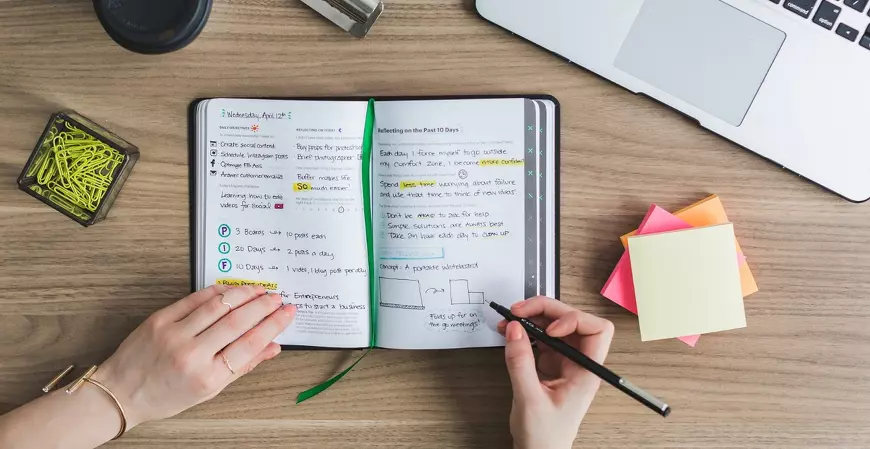 Wednesday, April 12th
DAILY OBJECTIVES
Create social content
Schedule Instagram posts
Optimize FB Ads
Answer customer emails
Learning how to edit
videos for social
P 3 Boards → 10 posts each
I 20 Days → 2 posts a day
F 10 Days → 1 video, 1 blog post per day
for Entrepreneurs
to start a business
REFLECTING ON TODAY
Buy props for
Brief photographer
Buffer makes life
SO much easier!
Reflecting on the Past 10 Days
Each day I force myself to go outside
my comfort zone, I become more confident
Spend less time worrying about failure
and use that time to think of new ideas!
Don't be AFRAID to ask for help
Simple solutions are ALWAYS best
Take an hour each day to CLEAN UP
Concept: A portable whiteboard
Folds up for on
the go meetings!
command
option